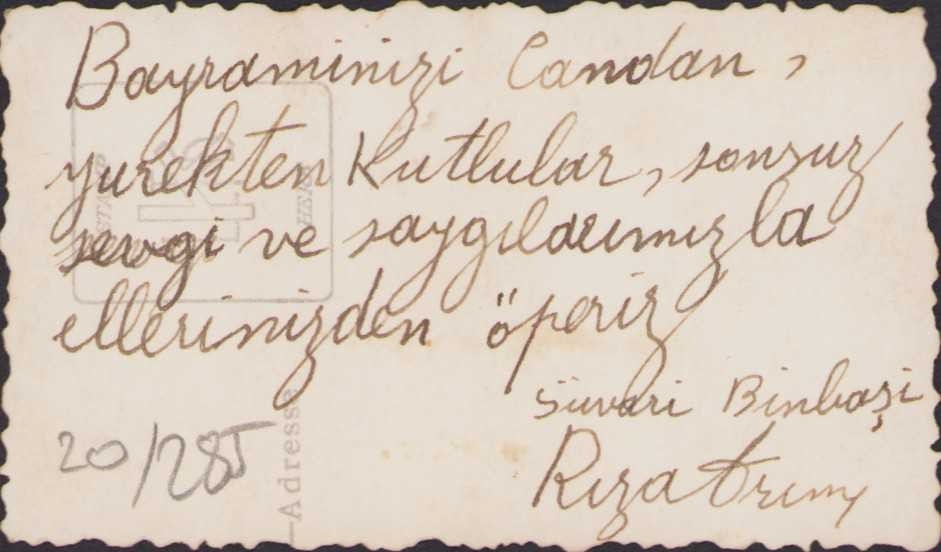 Bayraminizi Candan,
yurekten Kutlular, sonsuz
sevgi ve saygılarımızla
ellerinizden öperiz
Süvari Binbaşi
Rıza
20/285
Adresse